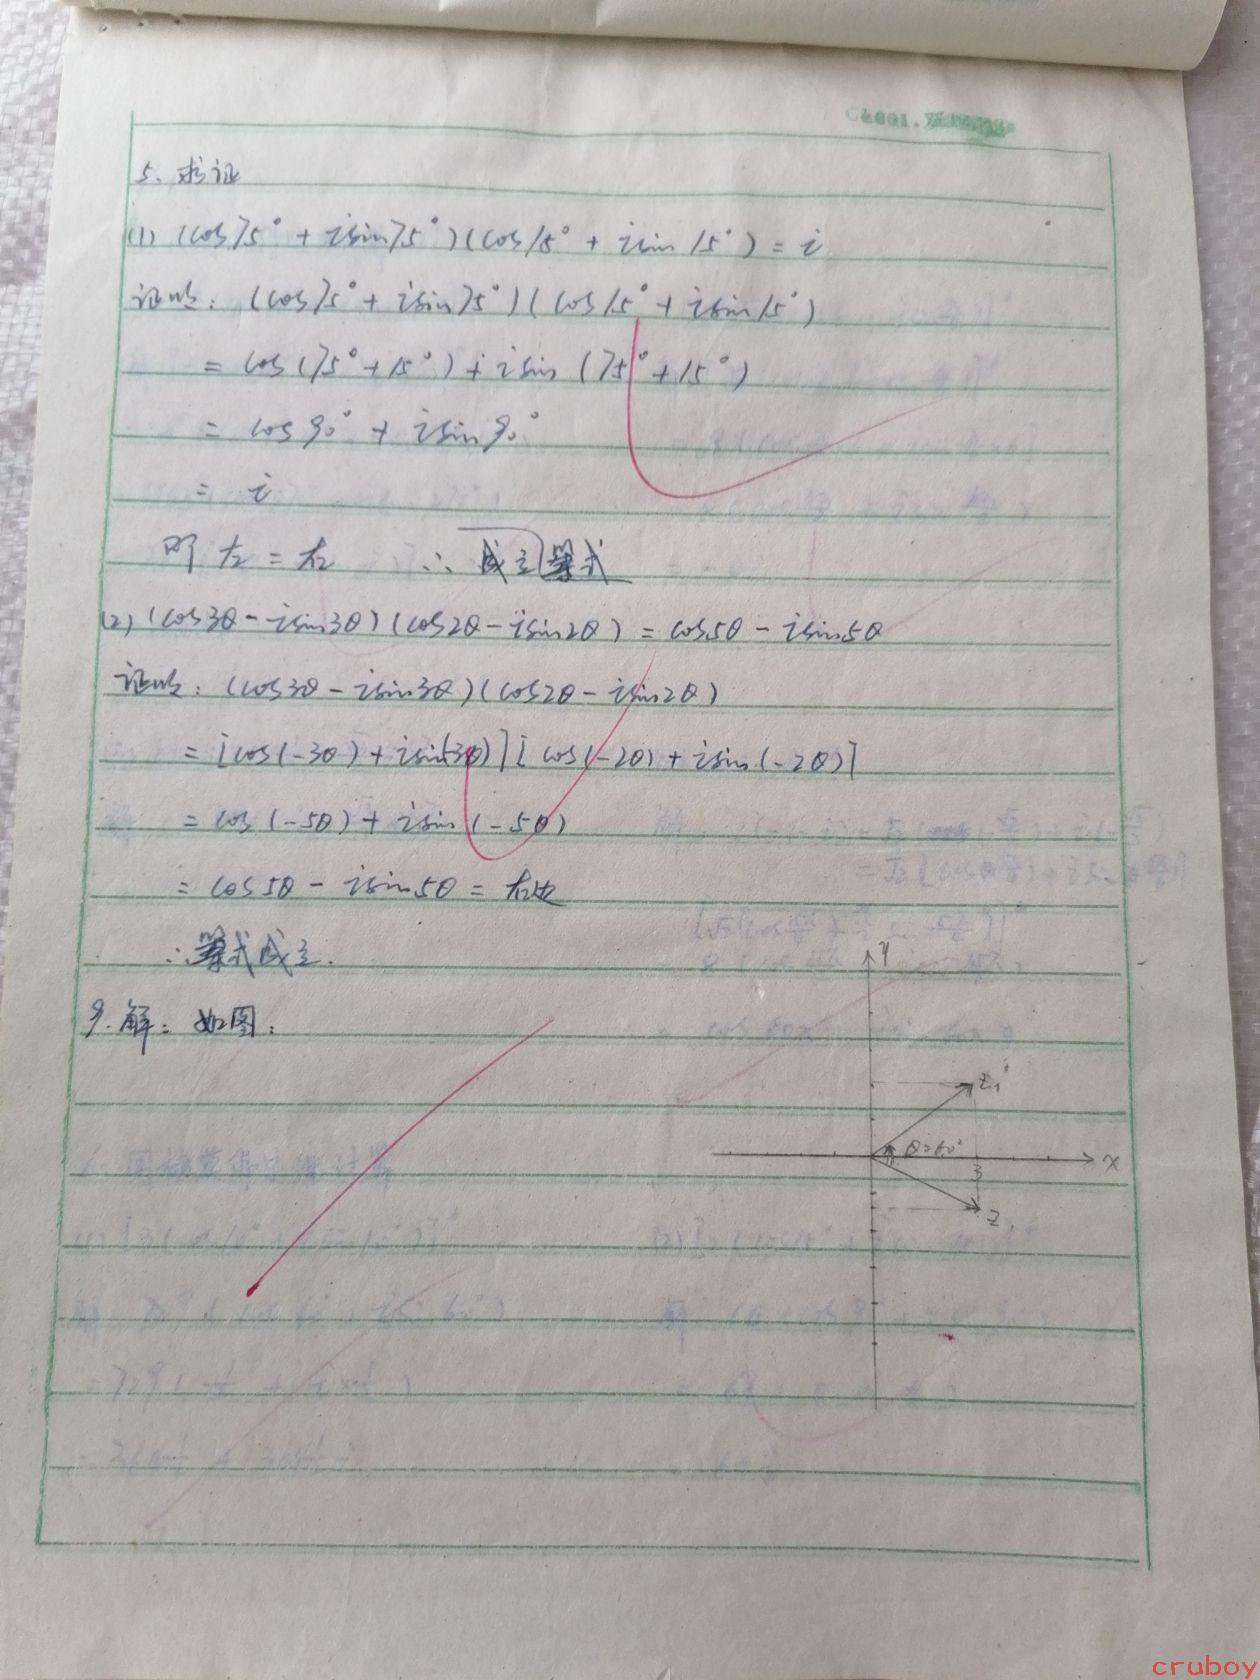 5. 求证
(1) (cos75° + isin75°)(cos15° + isin15°) = i
证明: (cos75° + isin75°)(cos15° + isin15°)
= cos(75°+15°) + isin(75°+15°)
= cos90° + isin90°
= i
即 左 = 右 ∴ 成立等式
(2) (cos3θ - isin3θ)(cos2θ - isin2θ) = cos5θ - isin5θ
证明: (cos3θ - isin3θ)(cos2θ - isin2θ)
= [cos(-3θ) + isin(-3θ)][cos(-2θ) + isin(-2θ)]
= cos(-5θ) + isin(-5θ)
= cos5θ - isin5θ = 右边
∴ 等式成立.
y
9. 解: 如图:
Z₁'
θ=60°
x
3
Z₁
cruboy